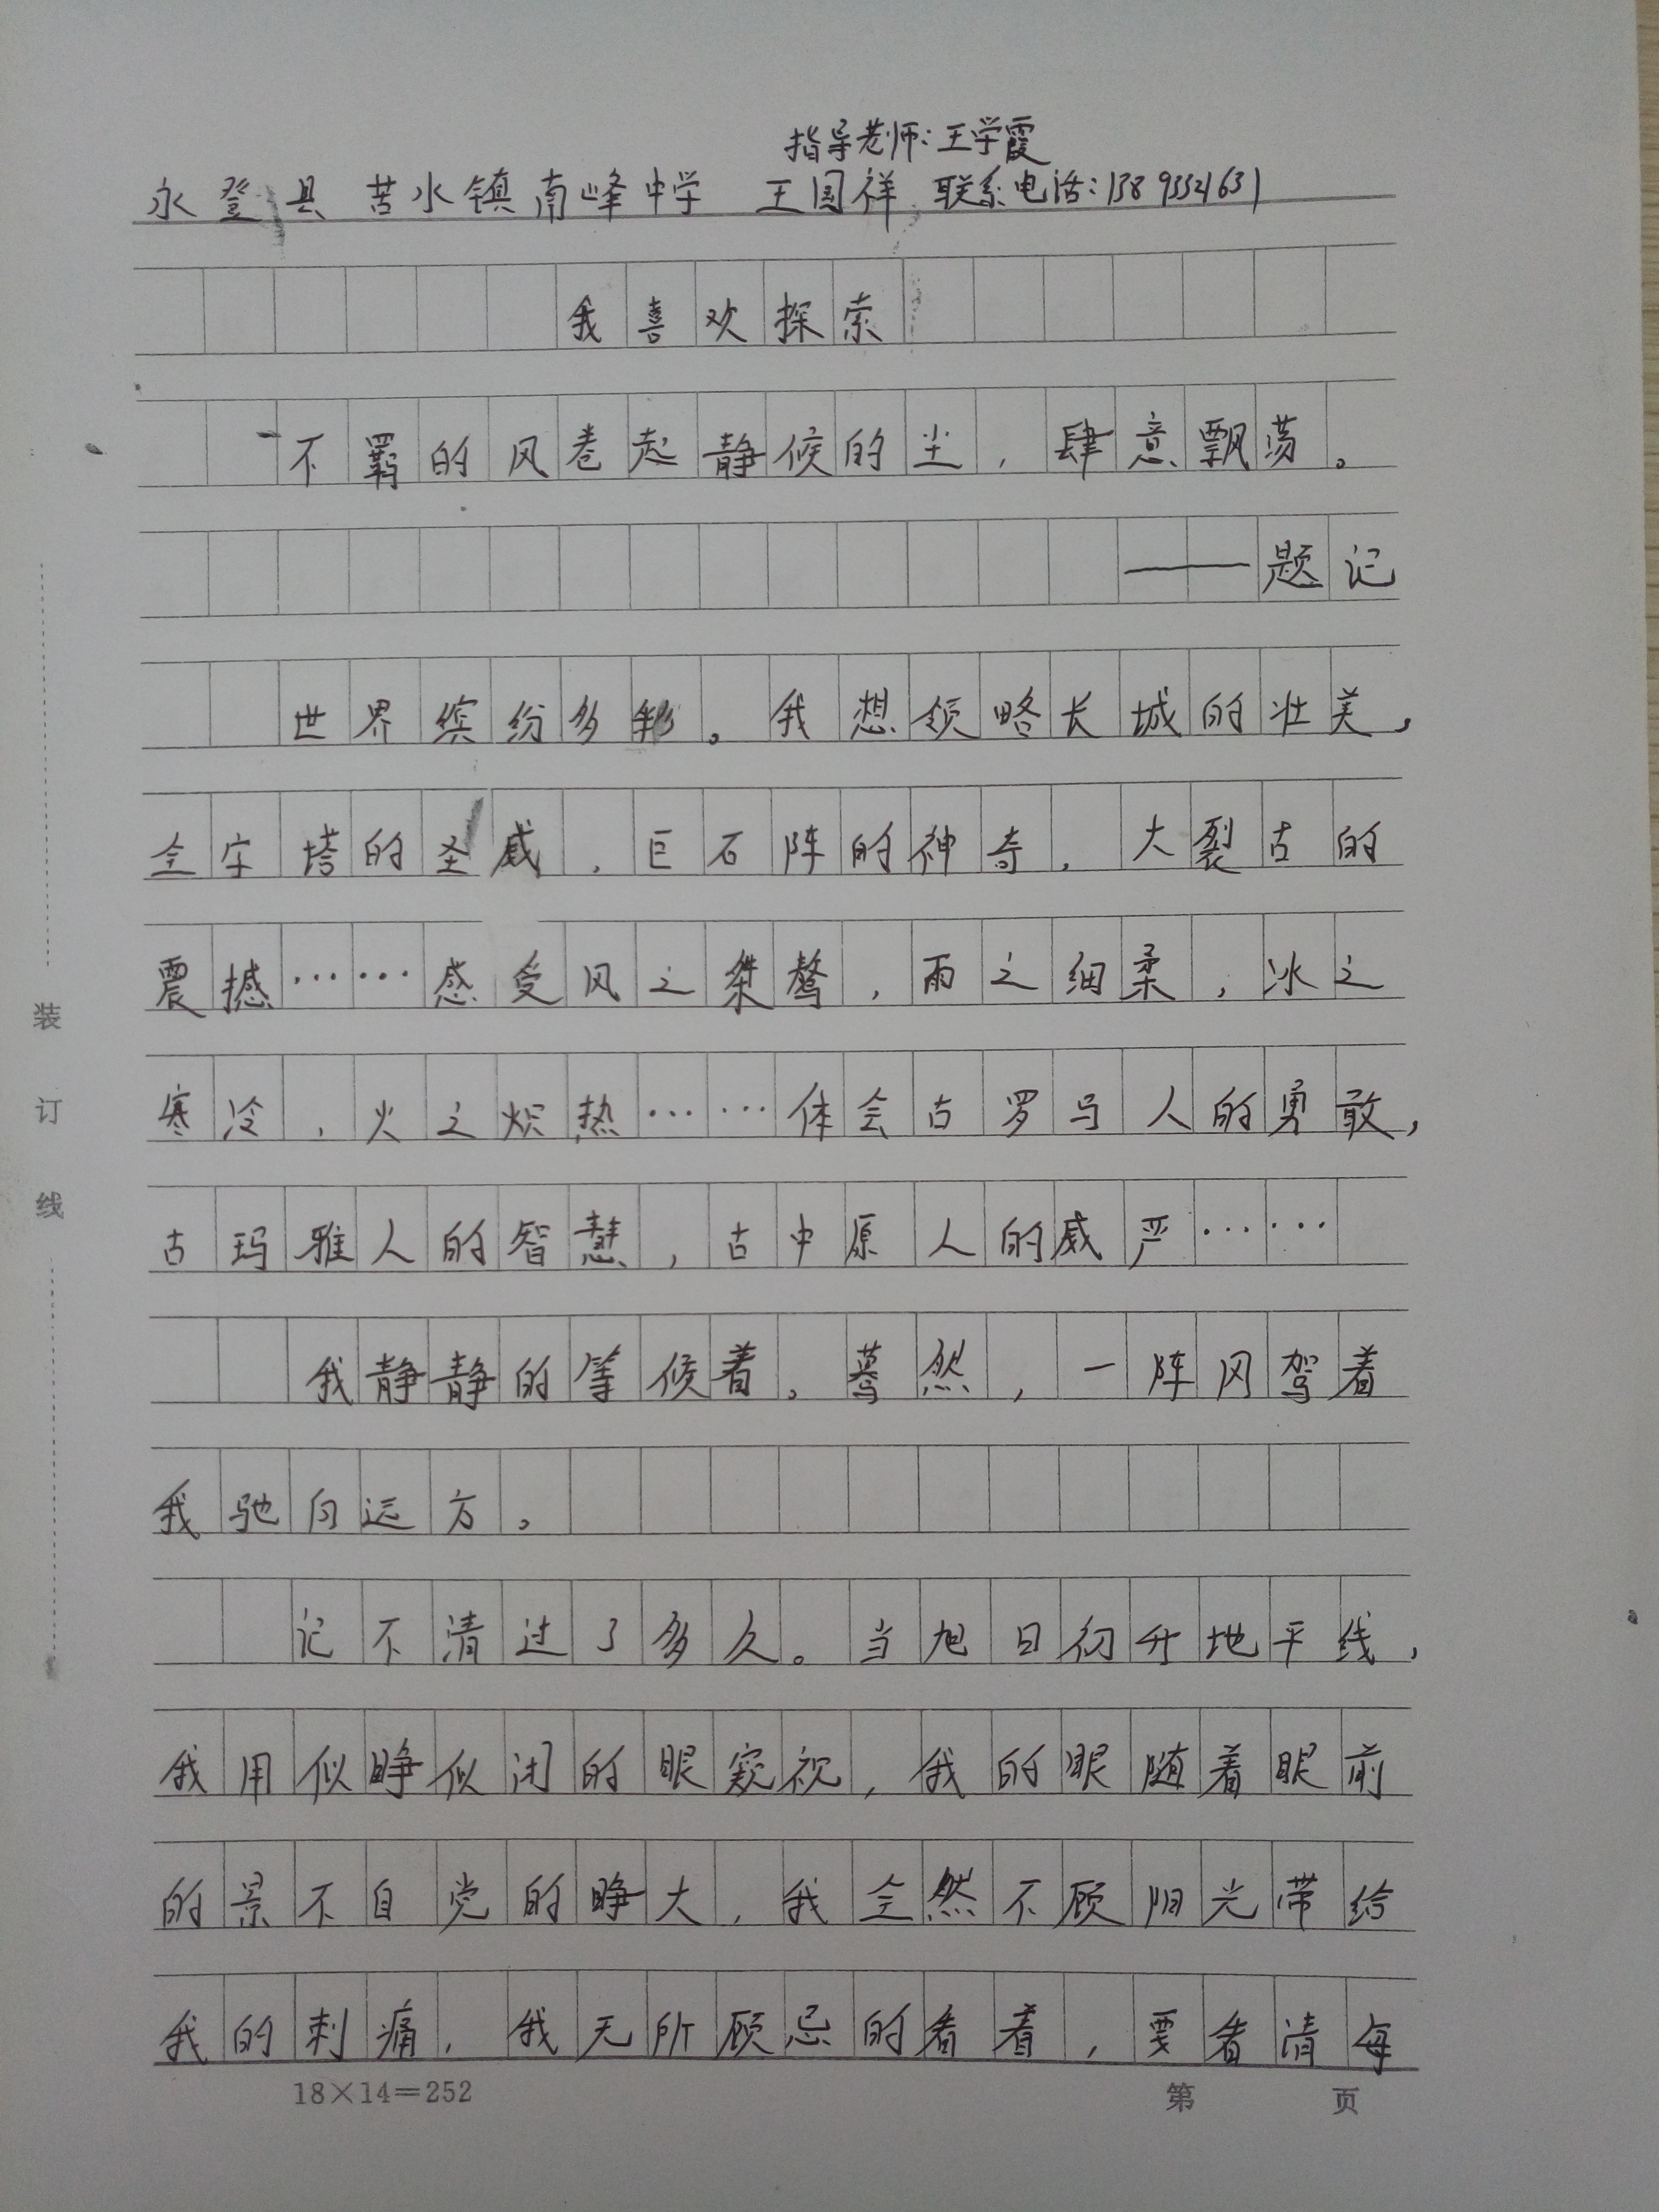 指导老师：王学霞
永登县苦水镇南峰中学 王国祥 联系电话：13893521631
我喜欢探索
不羁的风卷起静候的尘，肆意飘荡。
——题记
世界缤纷多彩。我想领略长城的壮美，
全字塔的圣威，巨石阵的神奇，大裂古的
震撼……感受风之桀骜，雨之细柔，冰之
寒冷，火之炽热……体会古罗马人的勇敢，
古玛雅人的智慧，古中原人的威严……
我静静的等候着。蓦然，一阵风驾着
我驰向远方。
记不清过了多久。当旭日初升地平线，
我用似睁似闭的眼窥视，我的眼随着眼前
的景不自觉的睁大，我全然不顾阳光带给
我的刺痛，我无所顾忌的看着，要看清每
装
订
线
18×14=252
第 页